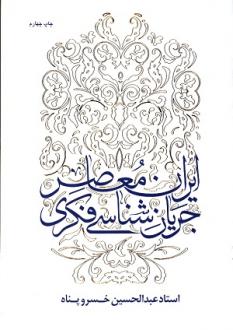 چاپ چهارم
جریان شناسی فکری
ایران معاصر
استاد عبدالحسین خسروپناه